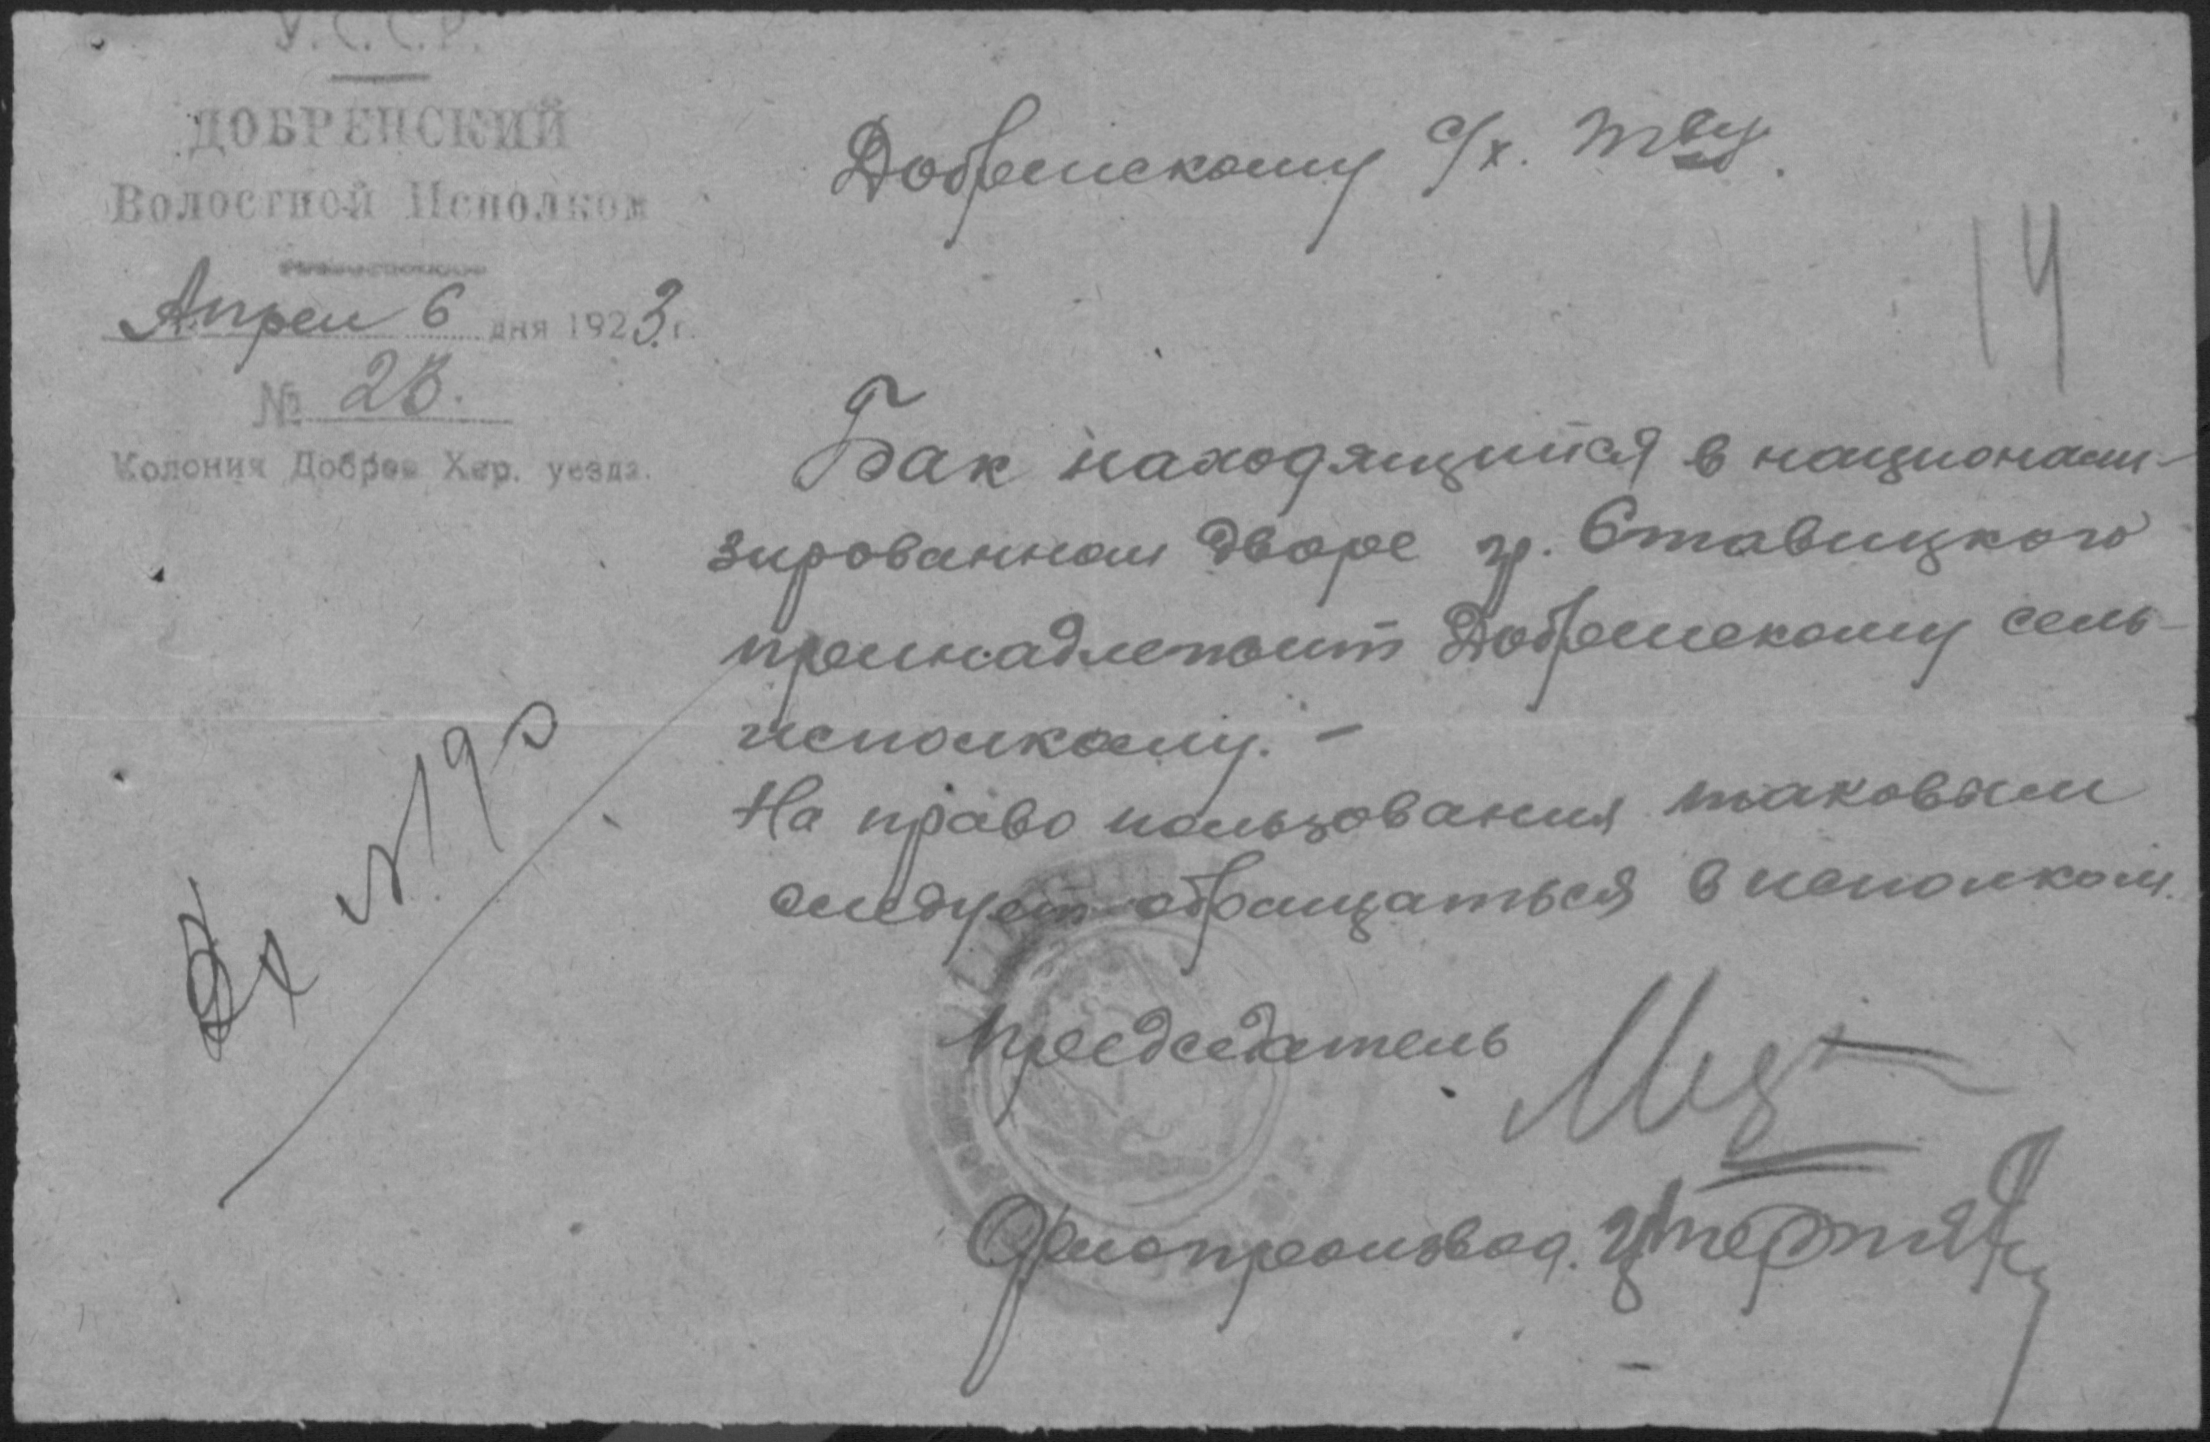 У.С.С.Р.
ДОБРЕНСКИЙ
Волостной Исполком
Апрел 6 дня 1923 г.
№ 28.
Колония Доброе Хер. уезда.
Добренскому с/х. Тву.
14
Бак находящийся в национали-
зированном дворе гр. Ставицкого
принадлежит Добренскому сель-
исполкому. -
На право пользования таковым
следует обращаться в исполком.
Вх №190
Председатель
Делопроизвод.